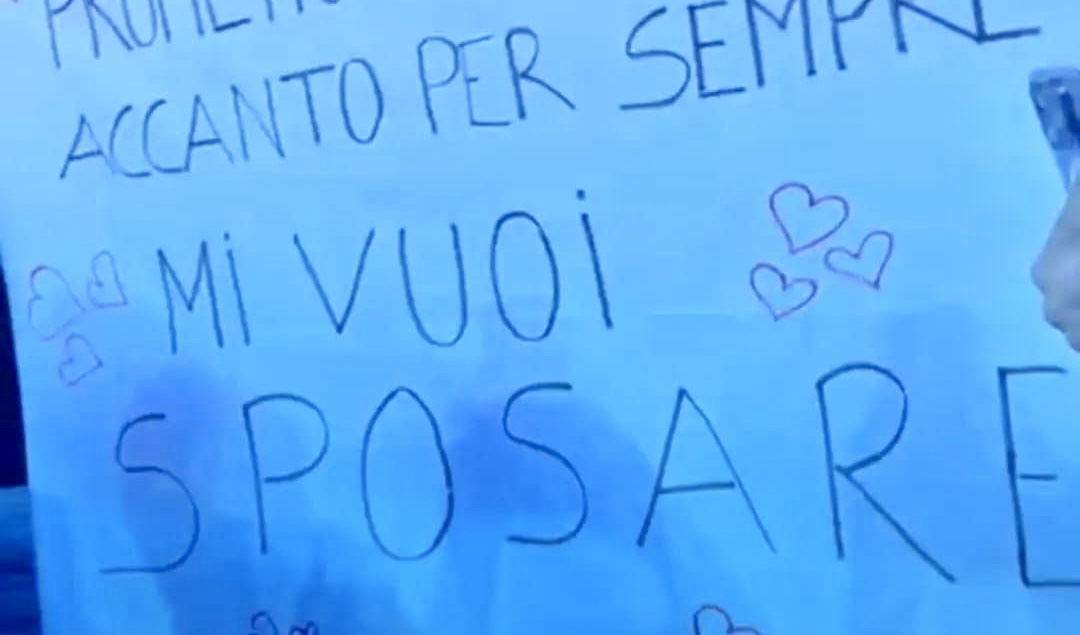 ACCANTO PER SEMPRE
Mi VUOi
SPOSARE